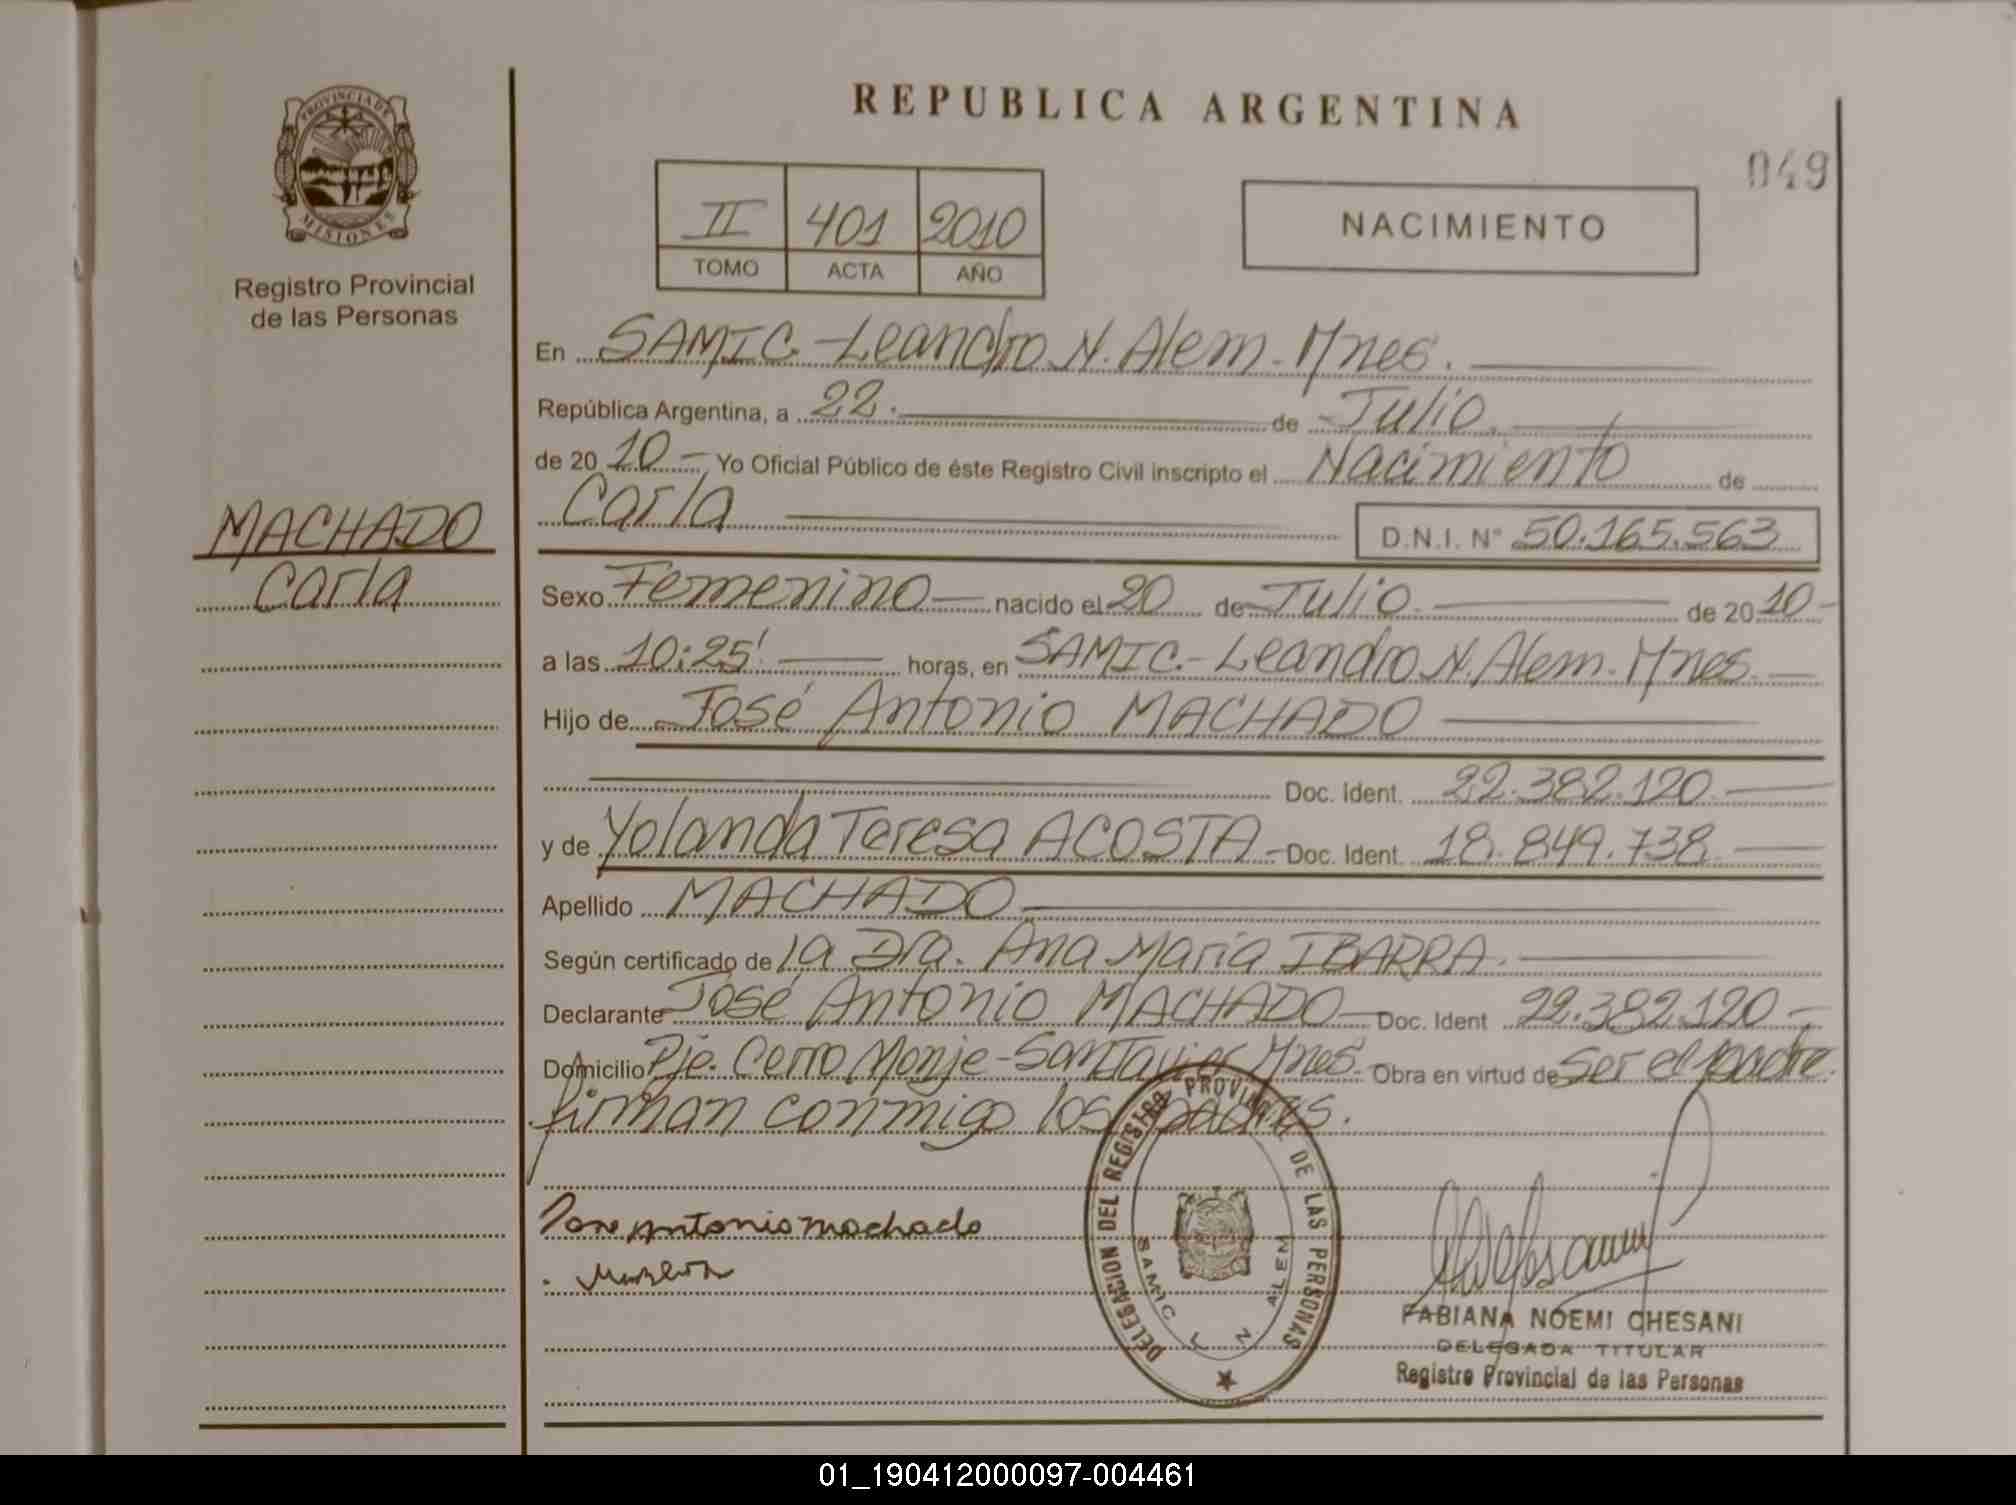 REPUBLICA ARGENTINA
049
PROVINCIA DE
MISIONES
Registro Provincial
de las Personas
II 401 2010
TOMO ACTA AÑO
NACIMIENTO
En SAMIC - Leandro N. Alem - Mnes.
República Argentina, a 22. de Julio.
de 20 10 - Yo Oficial Público de éste Registro Civil inscripto el Nacimiento de
Carla
D.N.I. N° 50.165.563
MACHADO
Carla
Sexo Femenino - nacido el 20 de Julio. de 20 10 -
a las 10:25' horas, en SAMIC. - Leandro N. Alem. Mnes.
Hijo de José Antonio MACHADO
Doc. Ident. 22.382.120.
y de Yolanda Teresa ACOSTA - Doc. Ident. 18.849.738
Apellido MACHADO
Según certificado de la Dra. Ana Maria IBARRA.
Declarante José Antonio MACHADO - Doc. Ident 22.382.120 -
Domicilio Pje. Cerro Monje - San Javier Mnes. Obra en virtud de Ser el padre.
firman conmigo los padres.
Jose Antonio machado
DELEGACION DEL REGISTRO PROVINCIAL DE LAS PERSONAS
SAMIC L N ALEM
FABIANA NOEMI CHESANI
DELEGADA TITULAR
Registro Provincial de las Personas
01_190412000097-004461